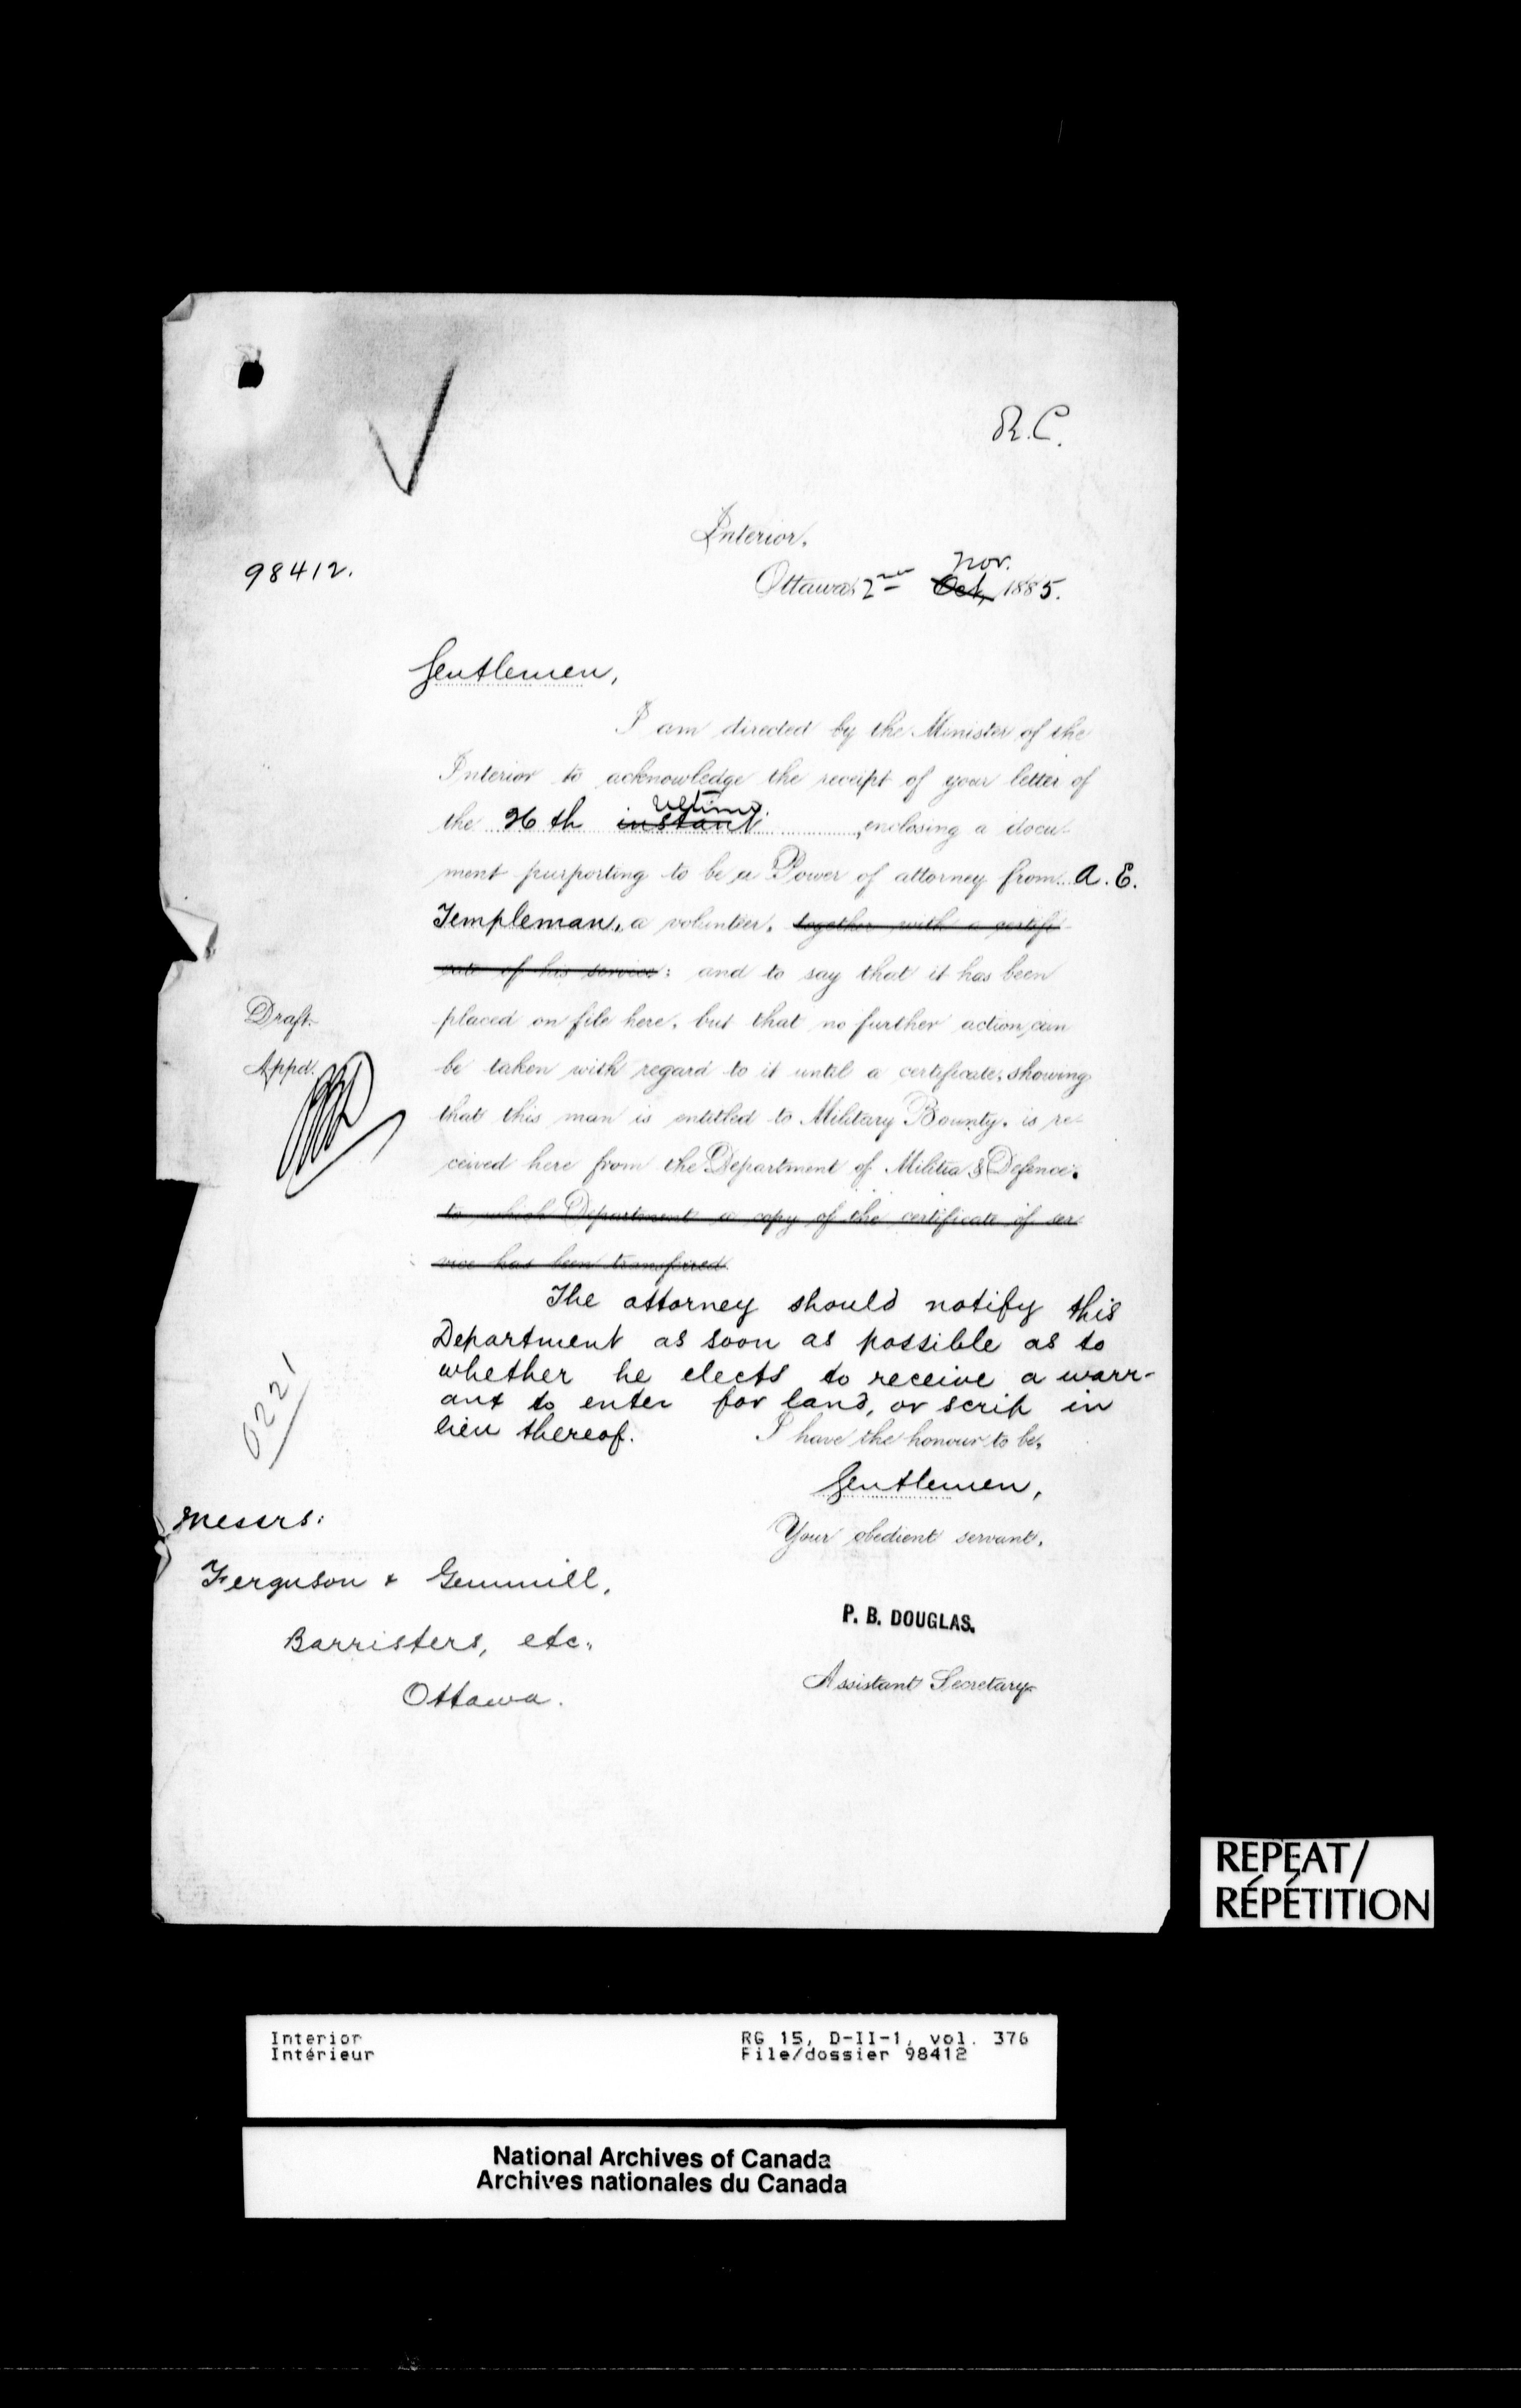 R.C.
Interior.
98412.
Nov.
Ottawa, 2nd Oct, 1885.
Gentlemen,
I am directed by the Minister of the
Interior to acknowledge the receipt of your letter of
ultimo.
the 26th instant, enclosing a docu-
ment purporting to be a Power of attorney from A. E.
Templeman, a volunteer, together with a certifi-
cate of his service: and to say that it has been
Draft.
placed on file here, but that no further action can
Appd.
be taken with regard to it until a certificate, showing
that this man is entitled to Military Bounty, is re-
ceived here from the Department of Militia & Defence.
to which Department a copy of the certificate of ser-
vice has been transferred.
The attorney should notify this
Department as soon as possible as to
whether he elects to receive a warr-
ant to enter for land, or scrip in
lieu thereof.
I have the honour to be,
Gentlemen,
Your obedient servant,
Messrs:
Ferguson & Gemmill,
Barristers, etc.,
Ottawa.
P. B. DOUGLAS.
Assistant Secretary
REPEAT/
RÉPÉTITION
Interior
Intérieur
RG 15, D-II-1, vol. 376
File/dossier 98412
National Archives of Canada
Archives nationales du Canada